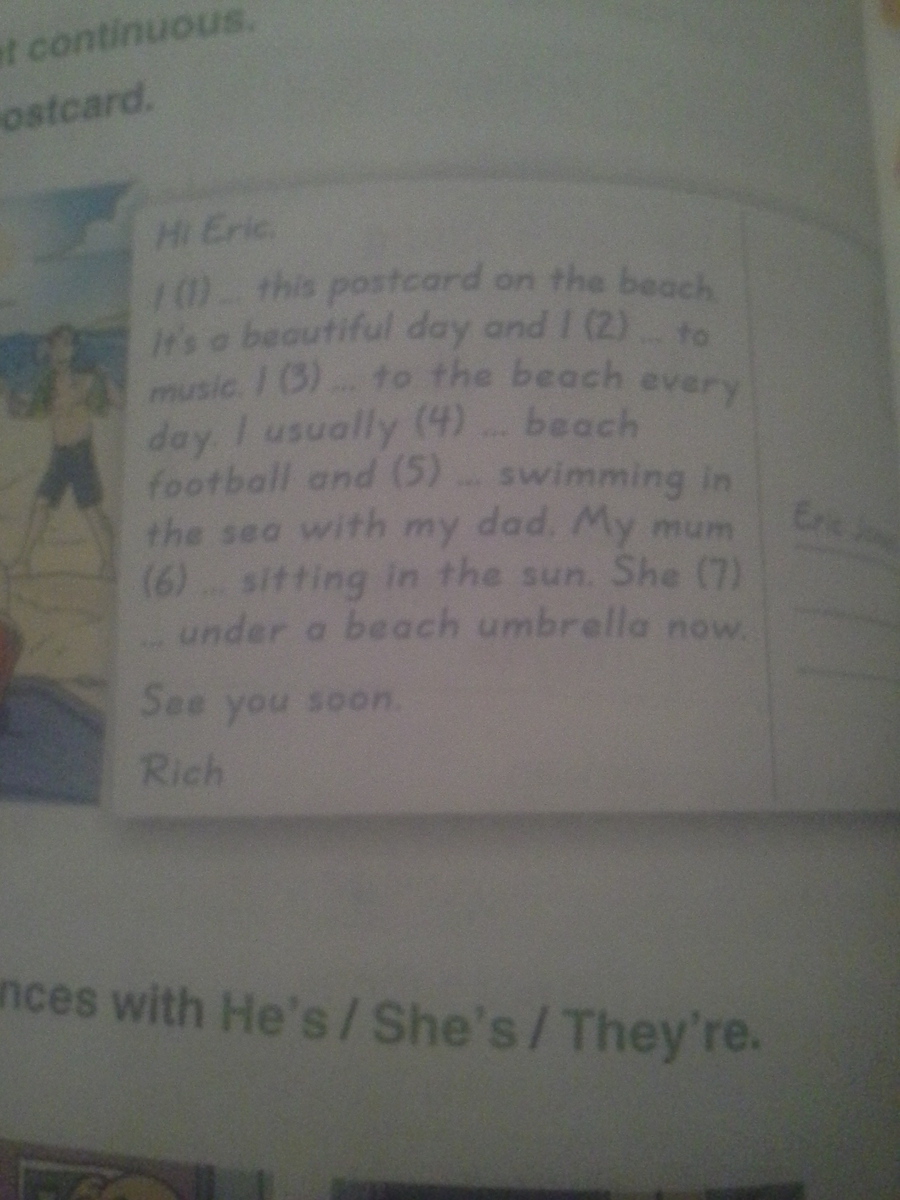 t continuous.
ostcard.
Hi Eric.
I (1) ... this postcard on the beach.
It's a beautiful day and I (2) ... to
music. I (3) ... to the beach every
day. I usually (4) ... beach
football and (5) ... swimming in
the sea with my dad. My mum
(6) ... sitting in the sun. She (7)
... under a beach umbrella now.
See you soon.
Rich
Eric
nces with He's / She's / They're.